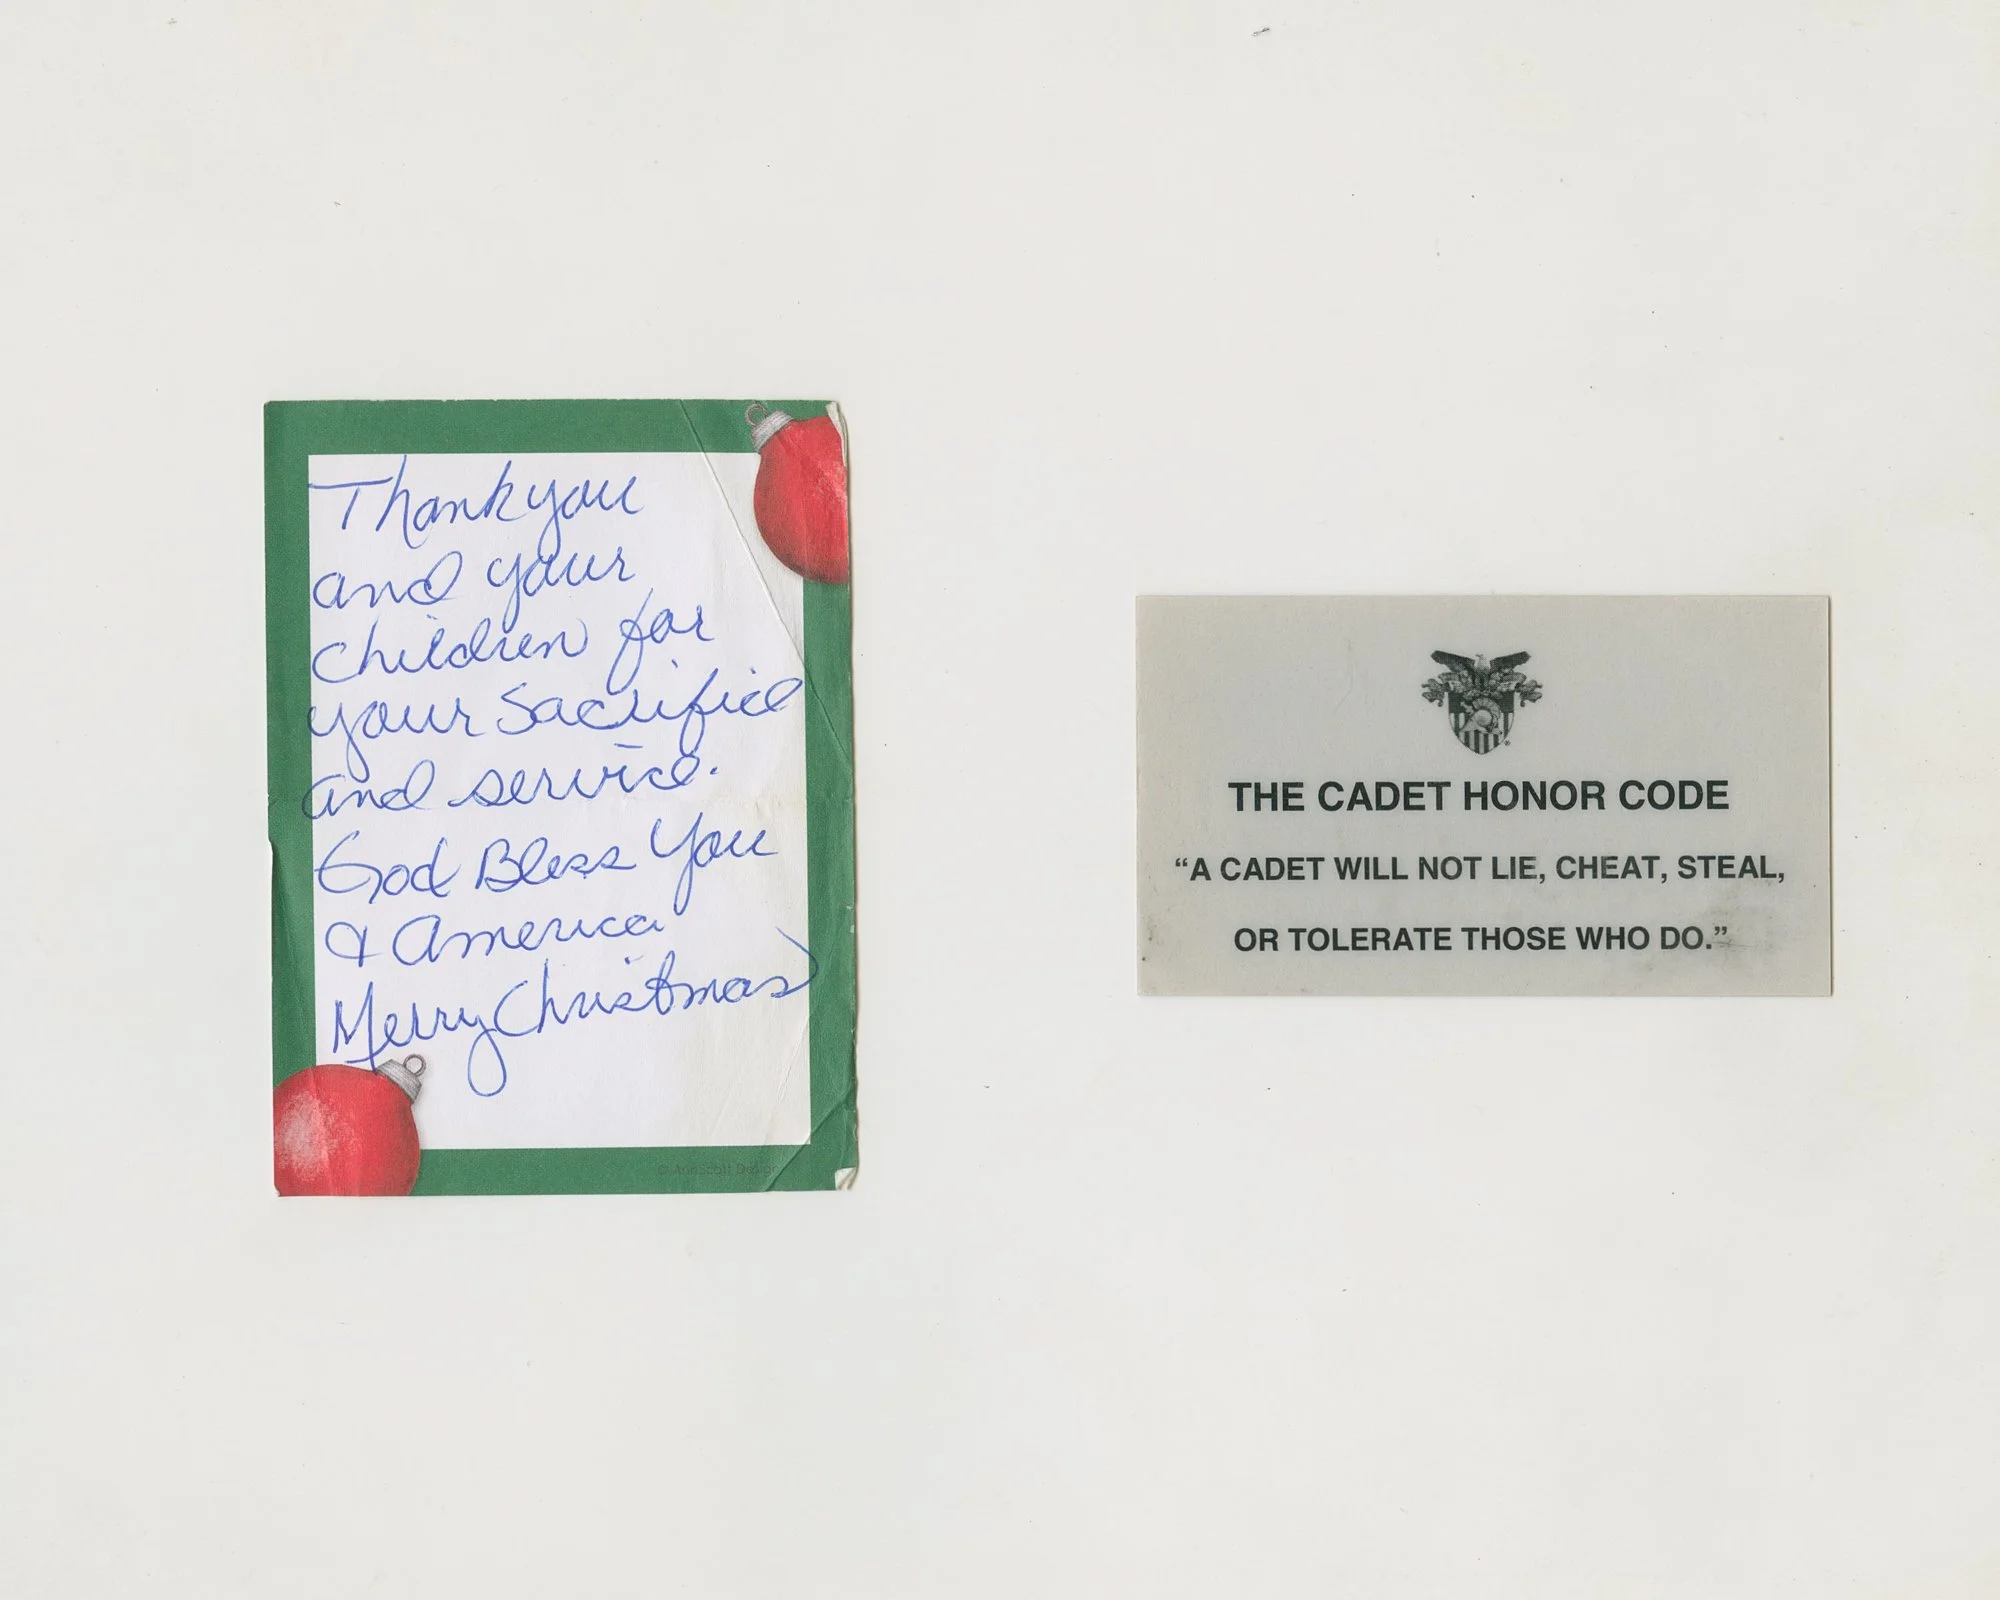 Thank you
and your
children for
your Sacrifice
and service.
God Bless You
& America
Merry Christmas
© AnnScott Design
THE CADET HONOR CODE
“A CADET WILL NOT LIE, CHEAT, STEAL,
OR TOLERATE THOSE WHO DO.”